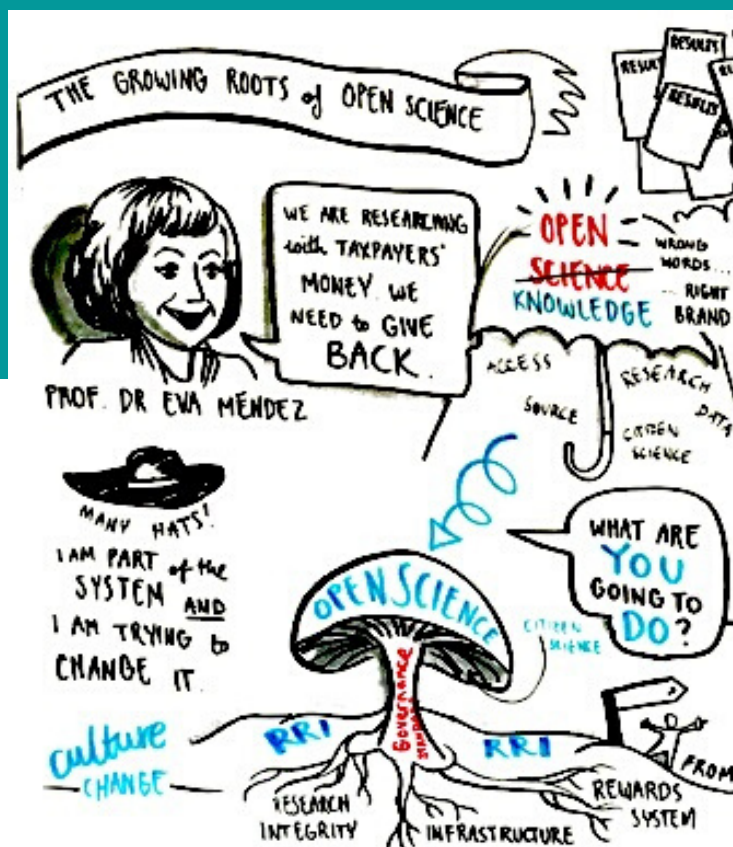 THE GROWING ROOTS of OPEN SCIENCE
RESULTS
RESULTS
WE ARE RESEARCHING
with TAXPAYERS'
MONEY. WE
NEED to GIVE
BACK.
PROF. DR EVA MÉNDEZ
OPEN
SCIENCE
KNOWLEDGE
WRONG
WORDS...
... RIGHT
BRAND
ACCESS
SOURCE
RESEARCH
DATA
CITIZEN
SCIENCE
MANY HATS!
I AM PART of the
SYSTEM AND
I AM TRYING to
CHANGE IT
WHAT ARE
YOU
GOING TO
DO?
OPEN SCIENCE
CITIZEN
SCIENCE
Governance
RRI
RRI
culture
CHANGE
RESEARCH
INTEGRITY
INFRASTRUCTURE
REWARDS
SYSTEM
FROM